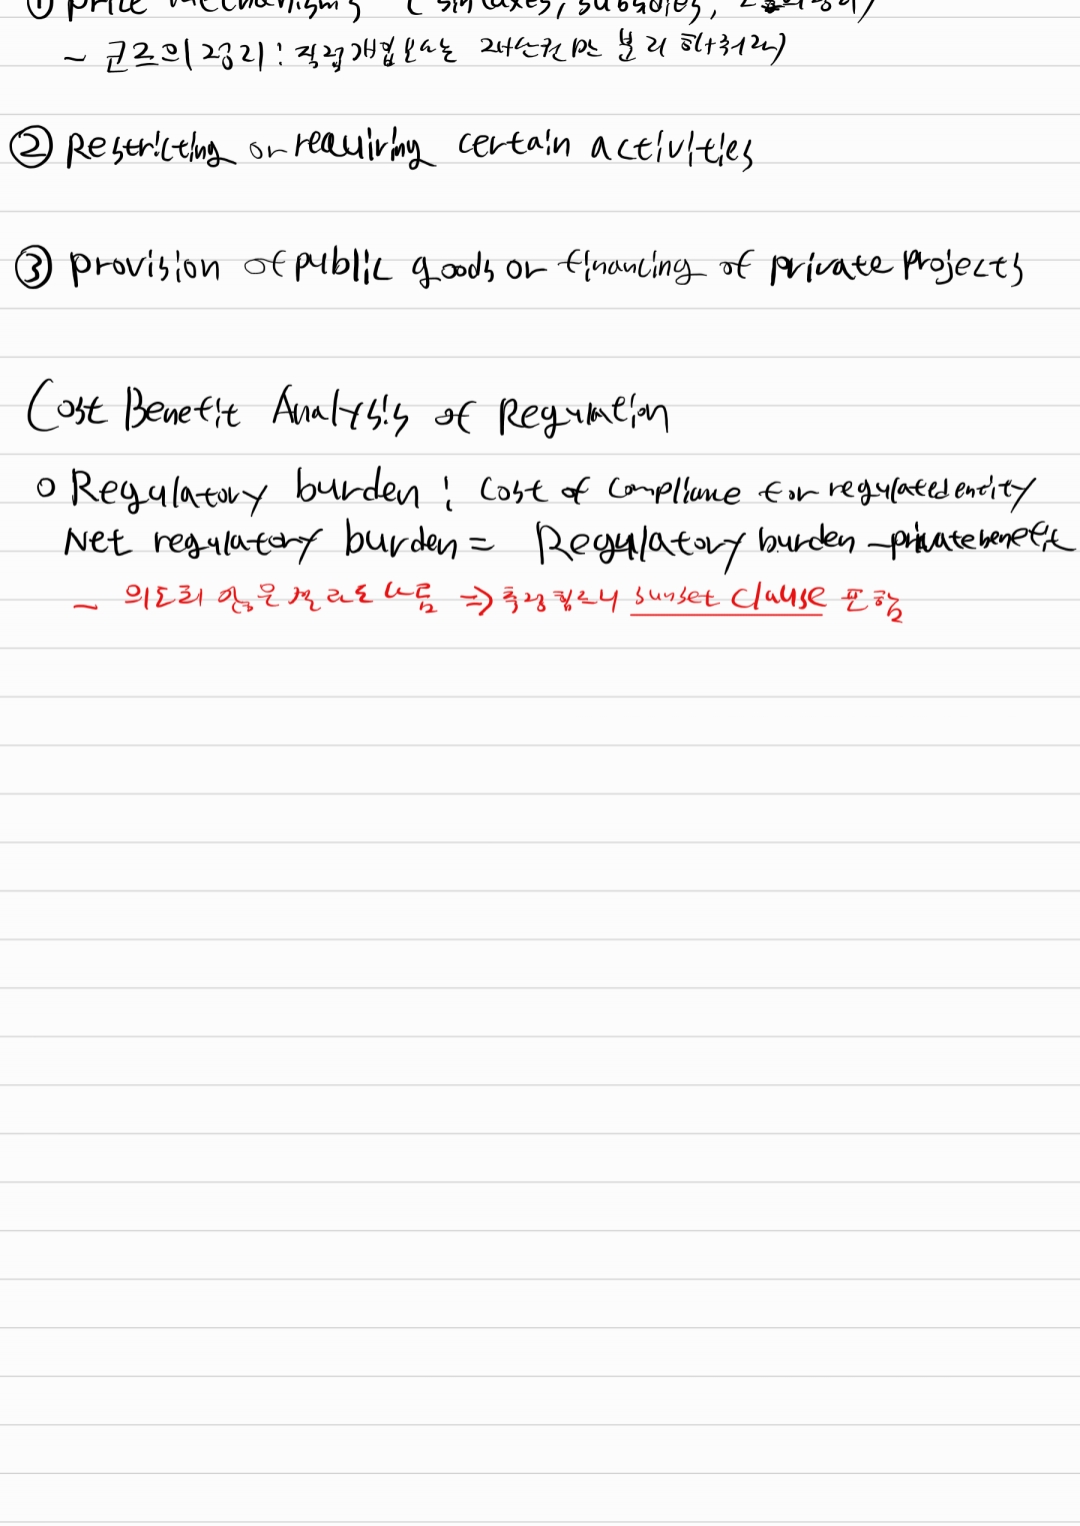 ① price mechanisms (sin taxes, subsidies,
~ 코즈의 정리 : 직접개입보다는 재산권만 분리 해줘라)
② Restricting or requiring certain activities
③ provision of public goods or financing of private projects
Cost Benefit Analysis of Regulation
o Regulatory burden : cost of compliance for regulated entity
Net regulatory burden = Regulatory burden - private benefit
- 의도치 않은 결과도 나옴 => 측정힘드니 sunset clause 포함